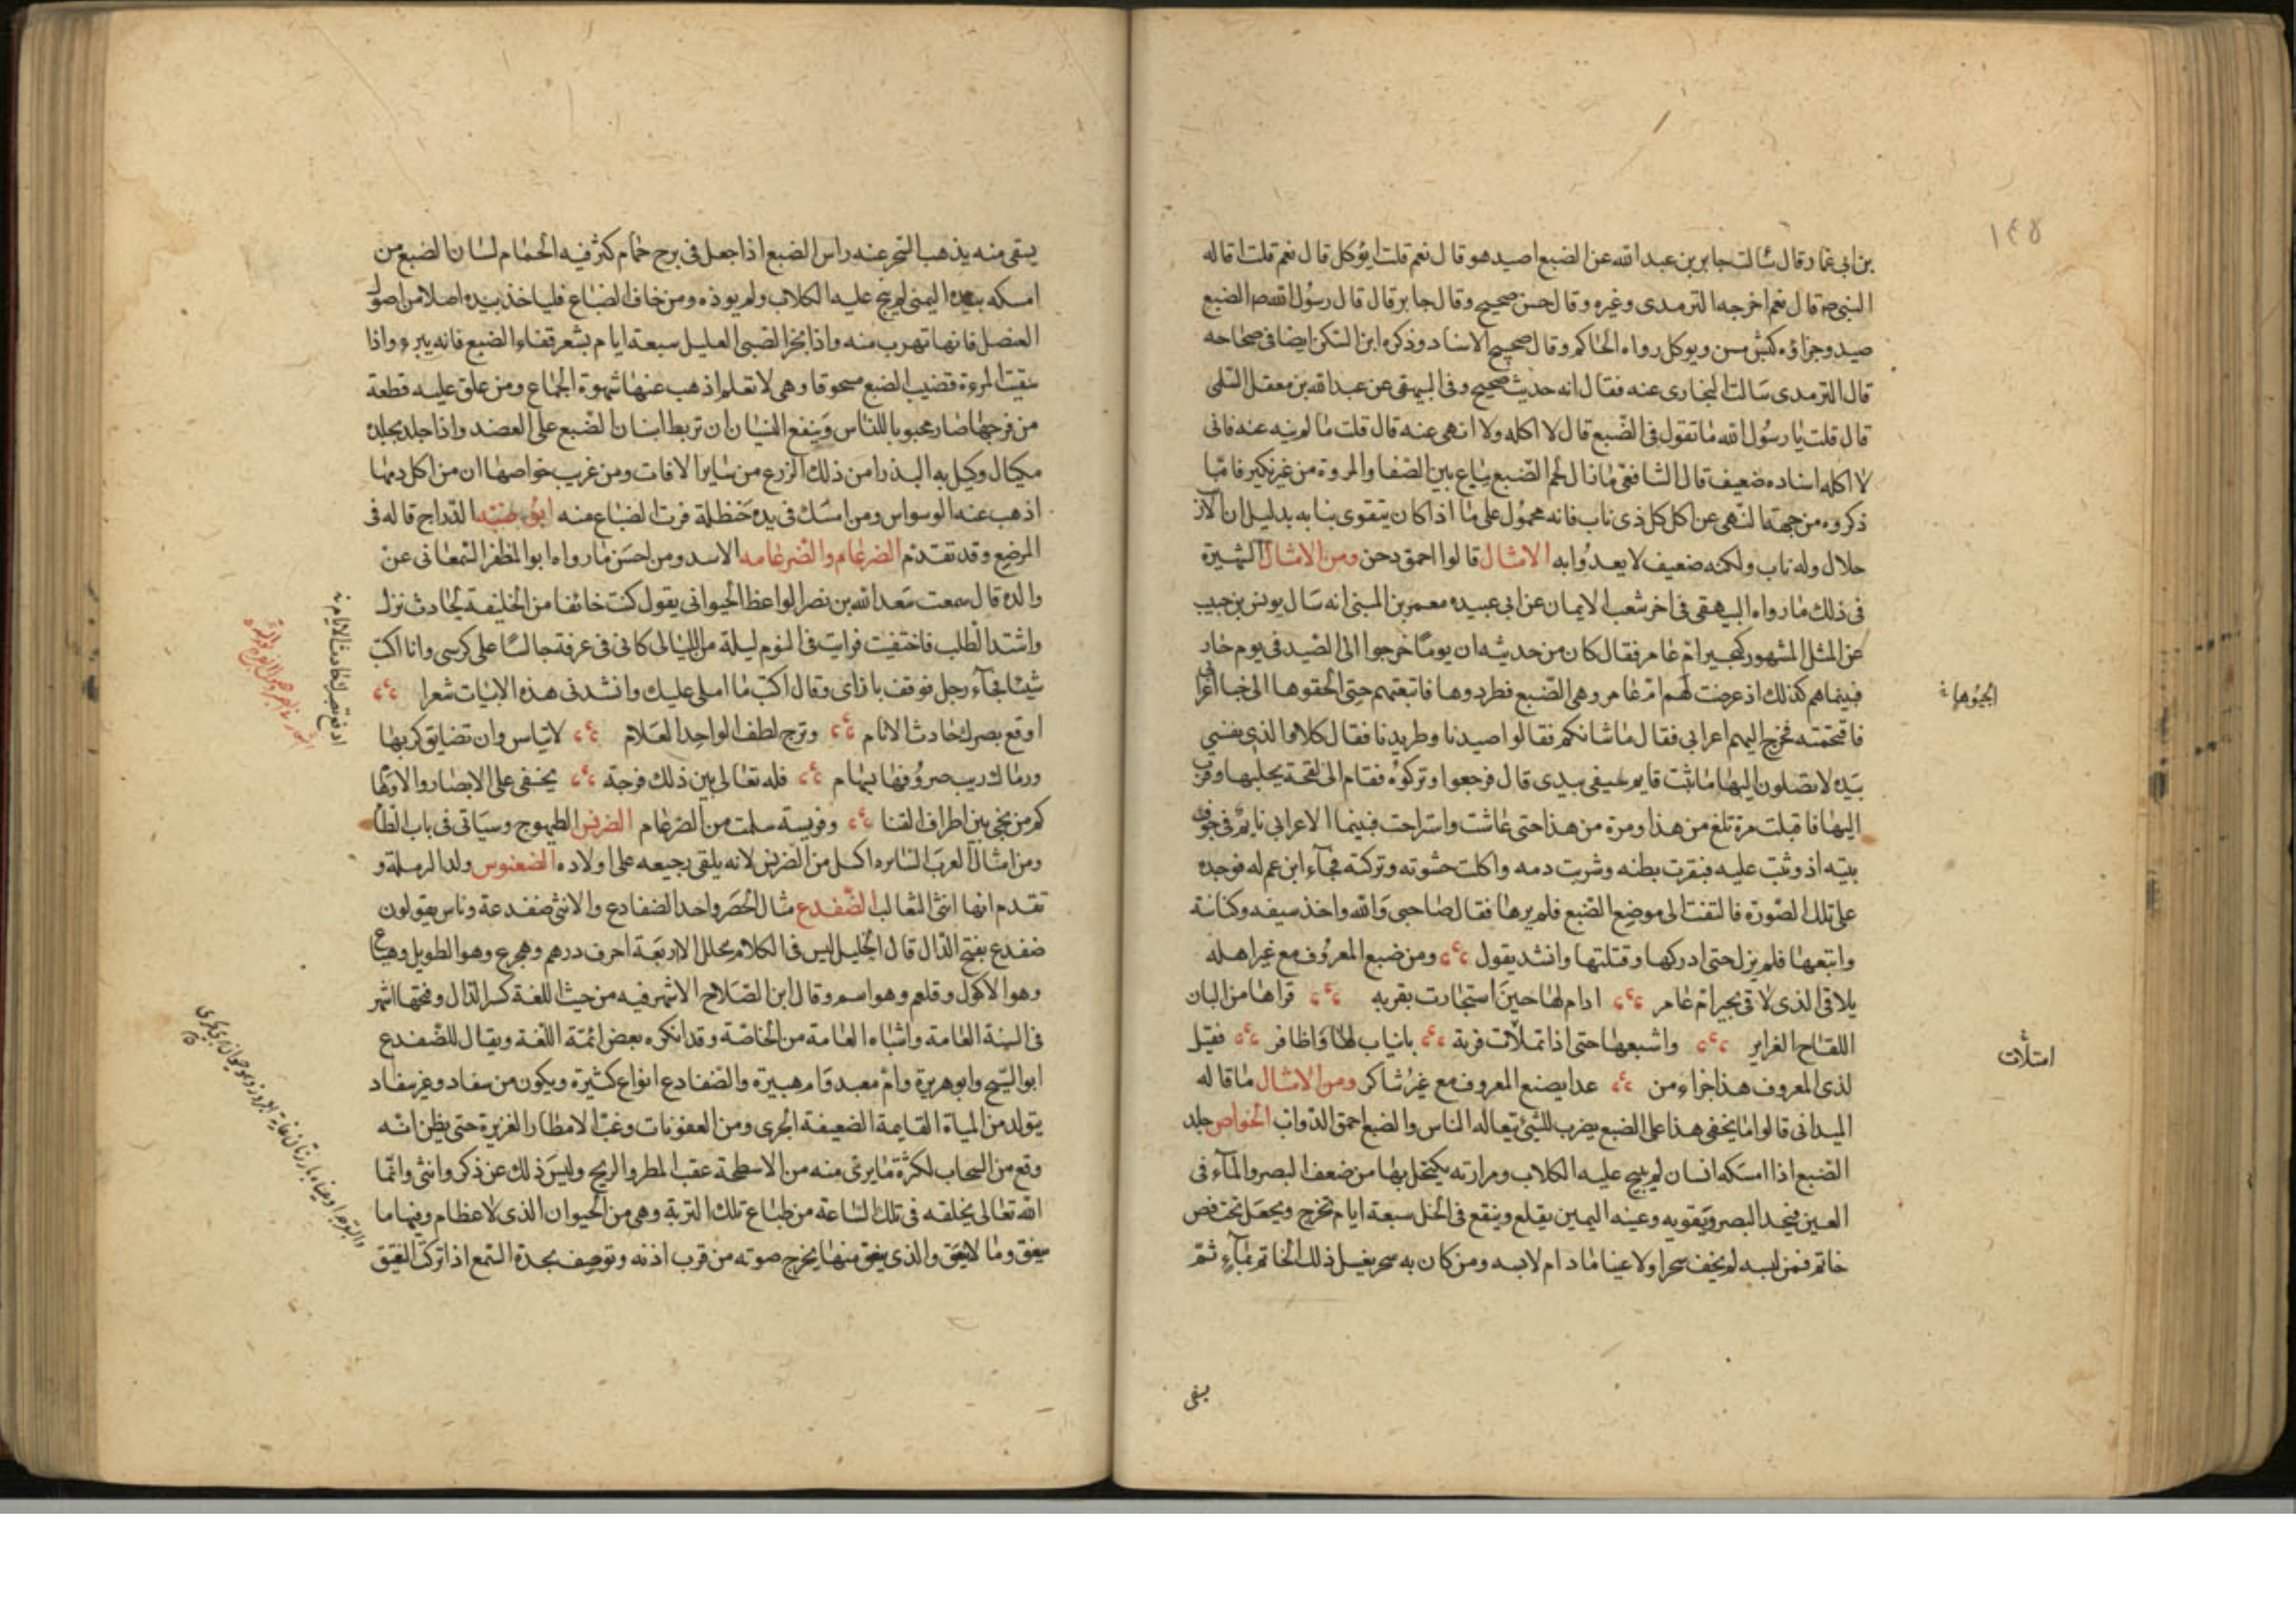 ١٤٥
بن ابى عمار وقال سالت جابر بن عبد الله عن الضبع اصيد هو قال نعم قلت ايؤكل قال نعم قلت اقاله
النبى ص قال نعم اخرجه الترمدى وغيره وقال حسن صحيح وقال جابر قال قال رسول الله ص الضبع
صيد وجزاؤه كبش مسن ويوكل رواه الحاكم وقال صحيح الاسناد وذكره ابن السكن ايضا فى صحاحه
قال الترمدى سالت البخارى عنه فقال انه حديث صحيح وفى البيهقى عن عبد الله بن معقل السلمى
قال قلت يا رسول الله ما تقول فى الضبع قال لا اكله ولا انهى عنه قال قلت ما لم تنه عنه فانى
لا اكله اسناده ضعيف قال الشافعى ما نال لحم الضبع يباع بين الصفا والمروة من غير نكير فاما
ذكروه من جهة النهى عن اكل كل ذى ناب فانه محمول على ما اذا كان يتقوى بنابه بدليل ان الارنب
حلال وله ناب ولكنه ضعيف لا يعدوا به الامثال قالوا احمق من ومن الامثال الشهيرة
فى ذلك ما رواه البيهقى فى اخر شعب الايمان عن ابى عبيده معمر بن المثنى انه سال يونس بن حبيب
عن المثل المشهور كمجير ام عامر فقال كان من حديثه ان يوما خرجوا الى الصيد فى يوم حار
فبينما هم كذلك اذ عرضت لهم ام عامر وهى الضبع فطردوها فاتبعتهم حتى الحقوها الى خبا اعرابى
الجئوها
فاقتحمته فخرج اليهم اعرابى فقال ما شانكم فقالوا صيدنا وطريدنا فقال كلا والذى نفسى
بيده لا تصلون اليها ما ثبت قايم سيفى بيدى قال فرجعوا وتركوه فقام الى لقحة يحلبها وقرب
اليها فاقبلت مرة تلغ من هذا ومرة من هذا حتى عاشت واستراحت فبينما الاعرابى نايم فى جوف
بيته اذ وثبت عليه فبقرت بطنه وشربت دمه واكلت حشوته وتركته فجآء ابن عم له فوجده
على تلك الصورة فالتفت الى موضع الضبع فلم يرها فقال صاحبى والله واخذ سيفه وكنانته
واتبعها فلم يزل حتى ادركها وقتلتها وانشد يقول ومن ضبع المعروف مع غير اهله
يلاقى الذى لاقى مجير ام عامر ادام لها حين استجارت بقربه قراها من البان
اللقاح الغراير واشبعها حتى اذا تملأت فربة بانياب لها واظافر فقيل
امتلأت
لذى المعروف هذا جزاء من غدا يصنع المعروف مع غير شاكر ومن الامثال ما قاله
الميدانى قالوا ما يخفى هذا على الضبع يضرب للشئ يتعاله الناس والضبع احمق الدواب الخواص جلد
الضبع اذا امسكه انسان لم ينبح عليه الكلاب ومرارته يكتحل بها من ضعف البصر والمآء فى
العين فيحد البصر ويقويه وعينه اليمين يقلع وينقع فى الخل سبعة ايام تخرج ويجعل تحت فص
خاتم فمن لبسه لم يخف سحرا ولا عينا ما دام لابسه ومن كان به سحر يغسل ذلك الخاتم بمآء ثم
يسقى
يسقى منه يذهب السحر عنه راس الضبع اذا جعل فى برج حمام كثر فيه الحمام لسان الضبع من
امسكه بيده اليمنى لم ينبح عليه الكلاب ولم يوذه ومن خاف الضباع فلياخذ بيده اصلا من اصول
العنصل فانها تهرب منه واذا بخر الصبى العليل سبعة ايام بشعر قفاء الضبع فانه يبرء واذا
سقيت المرءة قضيب الضبع مسحوقا وهى لا تعلم اذهب عنها شهوة الجماع ومن علق عليه قطعة
من فرجها صار محبوبا للناس وينفع النسيان ان تربط اسنان الضبع على العضد واذا جلد بجلده
مكيال وكيل به البذر امن ذلك الزرع من ساير الافات ومن غريب خواصها ان من اكل دمها
اذهب عنه الوسواس ومن امسك فى يده حنظلة فرت الضباع منه ابو ضبه الدراج قاله فى
المرضع وقد تقدم الضرغام والضرغامه الاسد ومن احسن ما رواه ابو المظفر السمعانى عن
والده قال سمعت سعد الله بن نصر الواعظ الحيوانى يقول كنت خائفا من الخليفة لحادث نزل
واشتد الطلب فاختفيت فرايت فى النوم ليلة من الليالى كانى فى غرفة جالسا على كرسى وانا اكتب
شيئا فجآء رجل فوقف بازاى وقال اكتب ما املى عليك وانشدنى هذه الابيات شعرا
اوقع بصرك حادث الانام وترج لطف الواحد العلام لا تياس وان تضايق كربها
ادفع بصبرك حادث الايام
ورماك ريب صروفها بسهام فله تعالى بين ذلك فرجة يخفى على الابصار والاوهام
كم من نجى بين اطراف القنا وفريسة سلمت من الضرغام الضريس الطيهوج وسياتى فى باب الطا
ومن امثال العرب السايره اكسل من الضريس لانه يلقى رجيعه على اولاده الضغبوس ولد الرملة و
تقدم انها انثى الثعالب الضفدع مثال الخنصر واحد الضفادع والانثى ضفدعة وناس يقولون
ضفدع بفتح الدال قال الخليل ليس فى الكلام محلل الا اربعة احرف درهم وهجرع وهو الطويل وهبلع
وهو الاكول وقلعم وهو اسم وقال ابن الصلاح الاشهر فيه من حيث اللغة كسر الدال وفتحها اشهر
فى السنة العامة واشباه العامة من الخاصة وقد انكره بعض ائمة اللغة ويقال للضفدع
ابو المسيح وابو هريرة وام معبد وام هبيرة والضفادع انواع كثيرة ويكون من سفاد وغير سفاد
يتولد من المياة القايمة الضعيفة الجرى ومن العفونات وغب الامطار الغزيرة حتى يظن انه
وقع من السحاب لكثرة ما يرى منه من الاسطحة عقب المطر والريح وليس ذلك عن ذكر وانثى وانما
الله تعالى يخلقه فى تلك الساعة من طباع تلك التربة وهى من الحيوان الذى لا عظام وفيها ما
ينقق وما لا ينقق والذى ينقق منها يخرج صوته من قرب اذنه وتوصف بحدة السمع اذا تركت النقيق